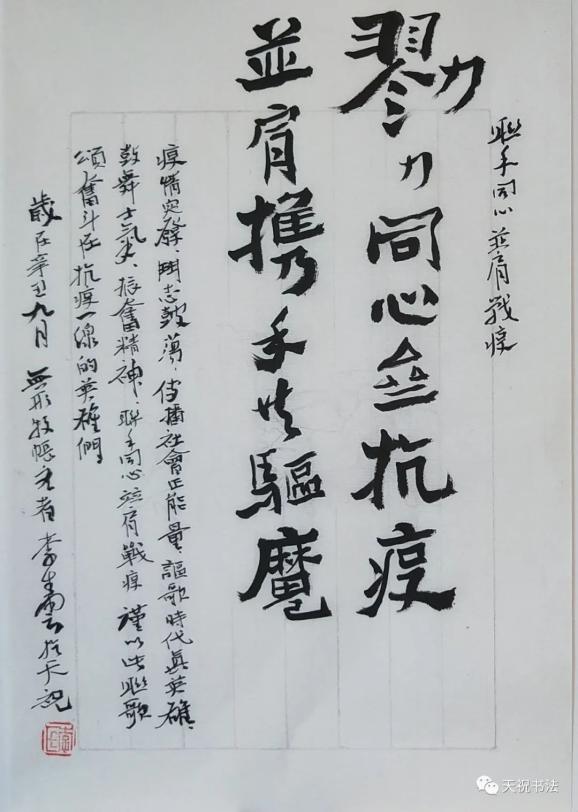 聯手同心並肩戰疫
勠力同心㕘抗疫
並肩携手共驅魔
疫情突發、鬥志鼓蕩，传播社會正能量、謳歌時代真英雄、
鼓舞士氣、振奮精神、聯手同心並肩戰疫 謹以此聯歌
頌奮斗在抗疫一線的英雄們
歲在辛丑九月 無形牧帳主者 李生雲於天祝
天祝书法